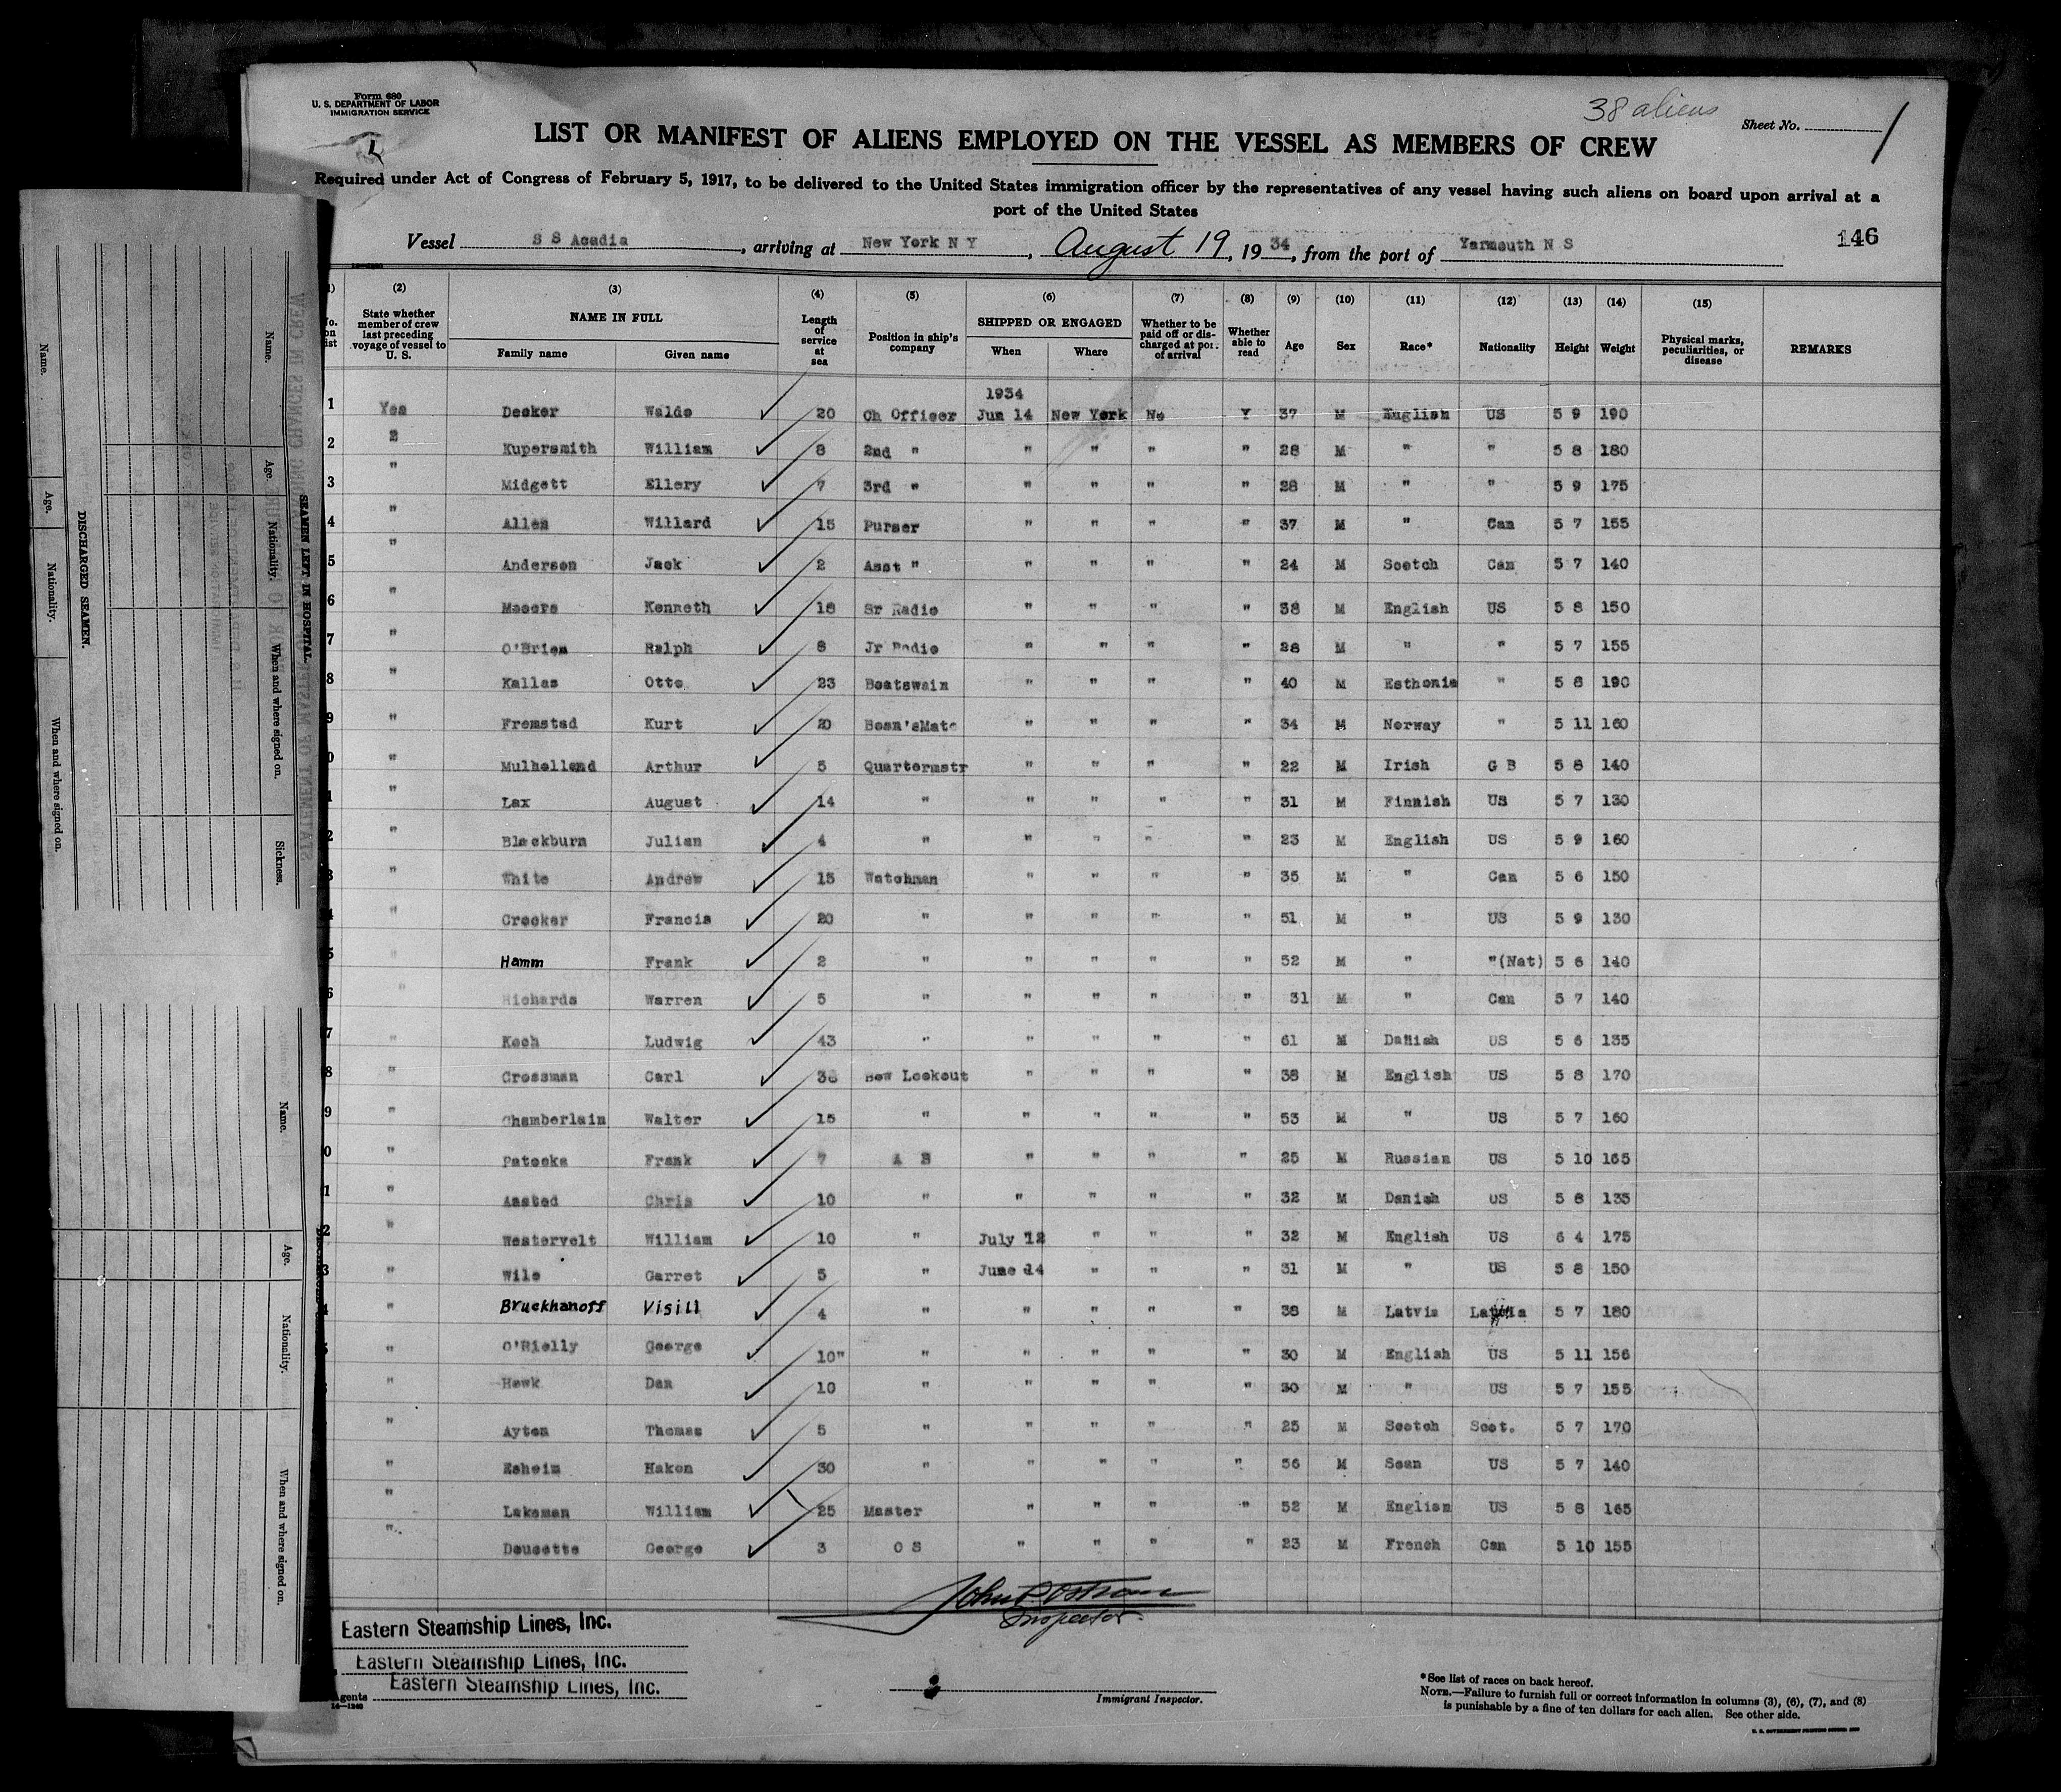 Form 680
U. S. DEPARTMENT OF LABOR
IMMIGRATION SERVICE
38 aliens
Sheet No. 1
LIST OR MANIFEST OF ALIENS EMPLOYED ON THE VESSEL AS MEMBERS OF CREW
Required under Act of Congress of February 5, 1917, to be delivered to the United States immigration officer by the representatives of any vessel having such aliens on board upon arrival at a
port of the United States
Vessel S S Acadia, arriving at New York N Y, August 19, 1934, from the port of Yarmouth N S
146
(2) (3) (4) (5) (6) (7) (8) (9) (10) (11) (12) (13) (14) (15)
State whether member of crew last preceding voyage of vessel to U. S. NAME IN FULL Family name Given name Length of service at sea Position in ship's company SHIPPED OR ENGAGED When Where Whether to be paid off or discharged at port of arrival Whether able to read Age Sex Race* Nationality Height Weight Physical marks, peculiarities, or disease REMARKS
1934
1 Yes Decker Waldo 20 Ch Officer Jun 14 New York No Y 37 M English US 5 9 190
2 " Kupersmith William 8 2nd " " " " " 28 M " " 5 8 180
3 " Midgett Ellery 7 3rd " " " " " 28 M " " 5 9 175
4 " Allen Willard 15 Purser " " " " 37 M " Can 5 7 155
5 " Anderson Jack 2 Asst " " " " " 24 M Scotch Can 5 7 140
6 " Moores Kenneth 18 Sr Radio " " " " 38 M English US 5 8 150
7 " O'Brien Ralph 8 Jr Radio " " " " 28 M " " 5 7 155
8 " Kallas Otto 23 Boatswain " " " " 40 M Esthonia " 5 8 190
9 " Fremstad Kurt 20 Bosn'sMate " " " " 34 M Norway " 5 11 160
0 " Mulholland Arthur 5 Quartermstr " " " " 22 M Irish G B 5 8 140
1 " Lax August 14 " " " " " 31 M Finnish US 5 7 130
2 " Blackburn Julian 4 " " " " " 23 M English US 5 9 160
3 " White Andrew 15 Watchman " " " " 35 M " Can 5 6 150
4 " Crocker Francis 20 " " " " " 51 M " US 5 9 130
5 " Hamm Frank 2 " " " " " 52 M " "(Nat) 5 6 140
6 " Richards Warren 5 " " " " " 31 M " Can 5 7 140
7 " Koch Ludwig 43 " " " " " 61 M Danish US 5 6 135
8 " Crossman Carl Bow Lookout " " " " 38 M English US 5 8 170
9 " Chamberlain Walter 15 " " " " " 53 M " US 5 7 160
0 " Patocka Frank 7 A B " " " " 25 M Russian US 5 10 165
1 " Aasted Chris 10 " " " " " 32 M Danish US 5 8 135
2 " Westervelt William 10 " July 12 " " " 32 M English US 6 4 175
3 " Wile Garret 5 " June 14 " " " 31 M " US 5 8 150
4 " Bruckhanoff Visill 4 " " " " " 38 M Latvia Latvia 5 7 180
5 " O'Rielly George 10" " " " " " 30 M English US 5 11 156
" Hawk Dan 10 " " " " " 30 M " US 5 7 155
" Ayton Thomas 5 " " " " " 25 M Scotch Scot. 5 7 170
" Esheim Hakon 30 " " " " " 56 M Scan US 5 7 140
" Lakeman William 25 Master " " " " 52 M English US 5 8 165
" Doucette George 3 O S " " " " 23 M French Can 5 10 155
Inspector
Eastern Steamship Lines, Inc.
Eastern Steamship Lines, Inc.
Eastern Steamship Lines, Inc.
Agents
Immigrant Inspector.
*See list of races on back hereof.
NOTE.—Failure to furnish full or correct information in columns (3), (6), (7), and (8)
is punishable by a fine of ten dollars for each alien. See other side.
DISCHARGED SEAMEN.
Name. Age. Nationality. When and where signed on.
SEAMEN LEFT IN HOSPITAL
Name. Age. Nationality. When and where signed on. Sickness.
Name. Age. Nationality. When and where signed on.